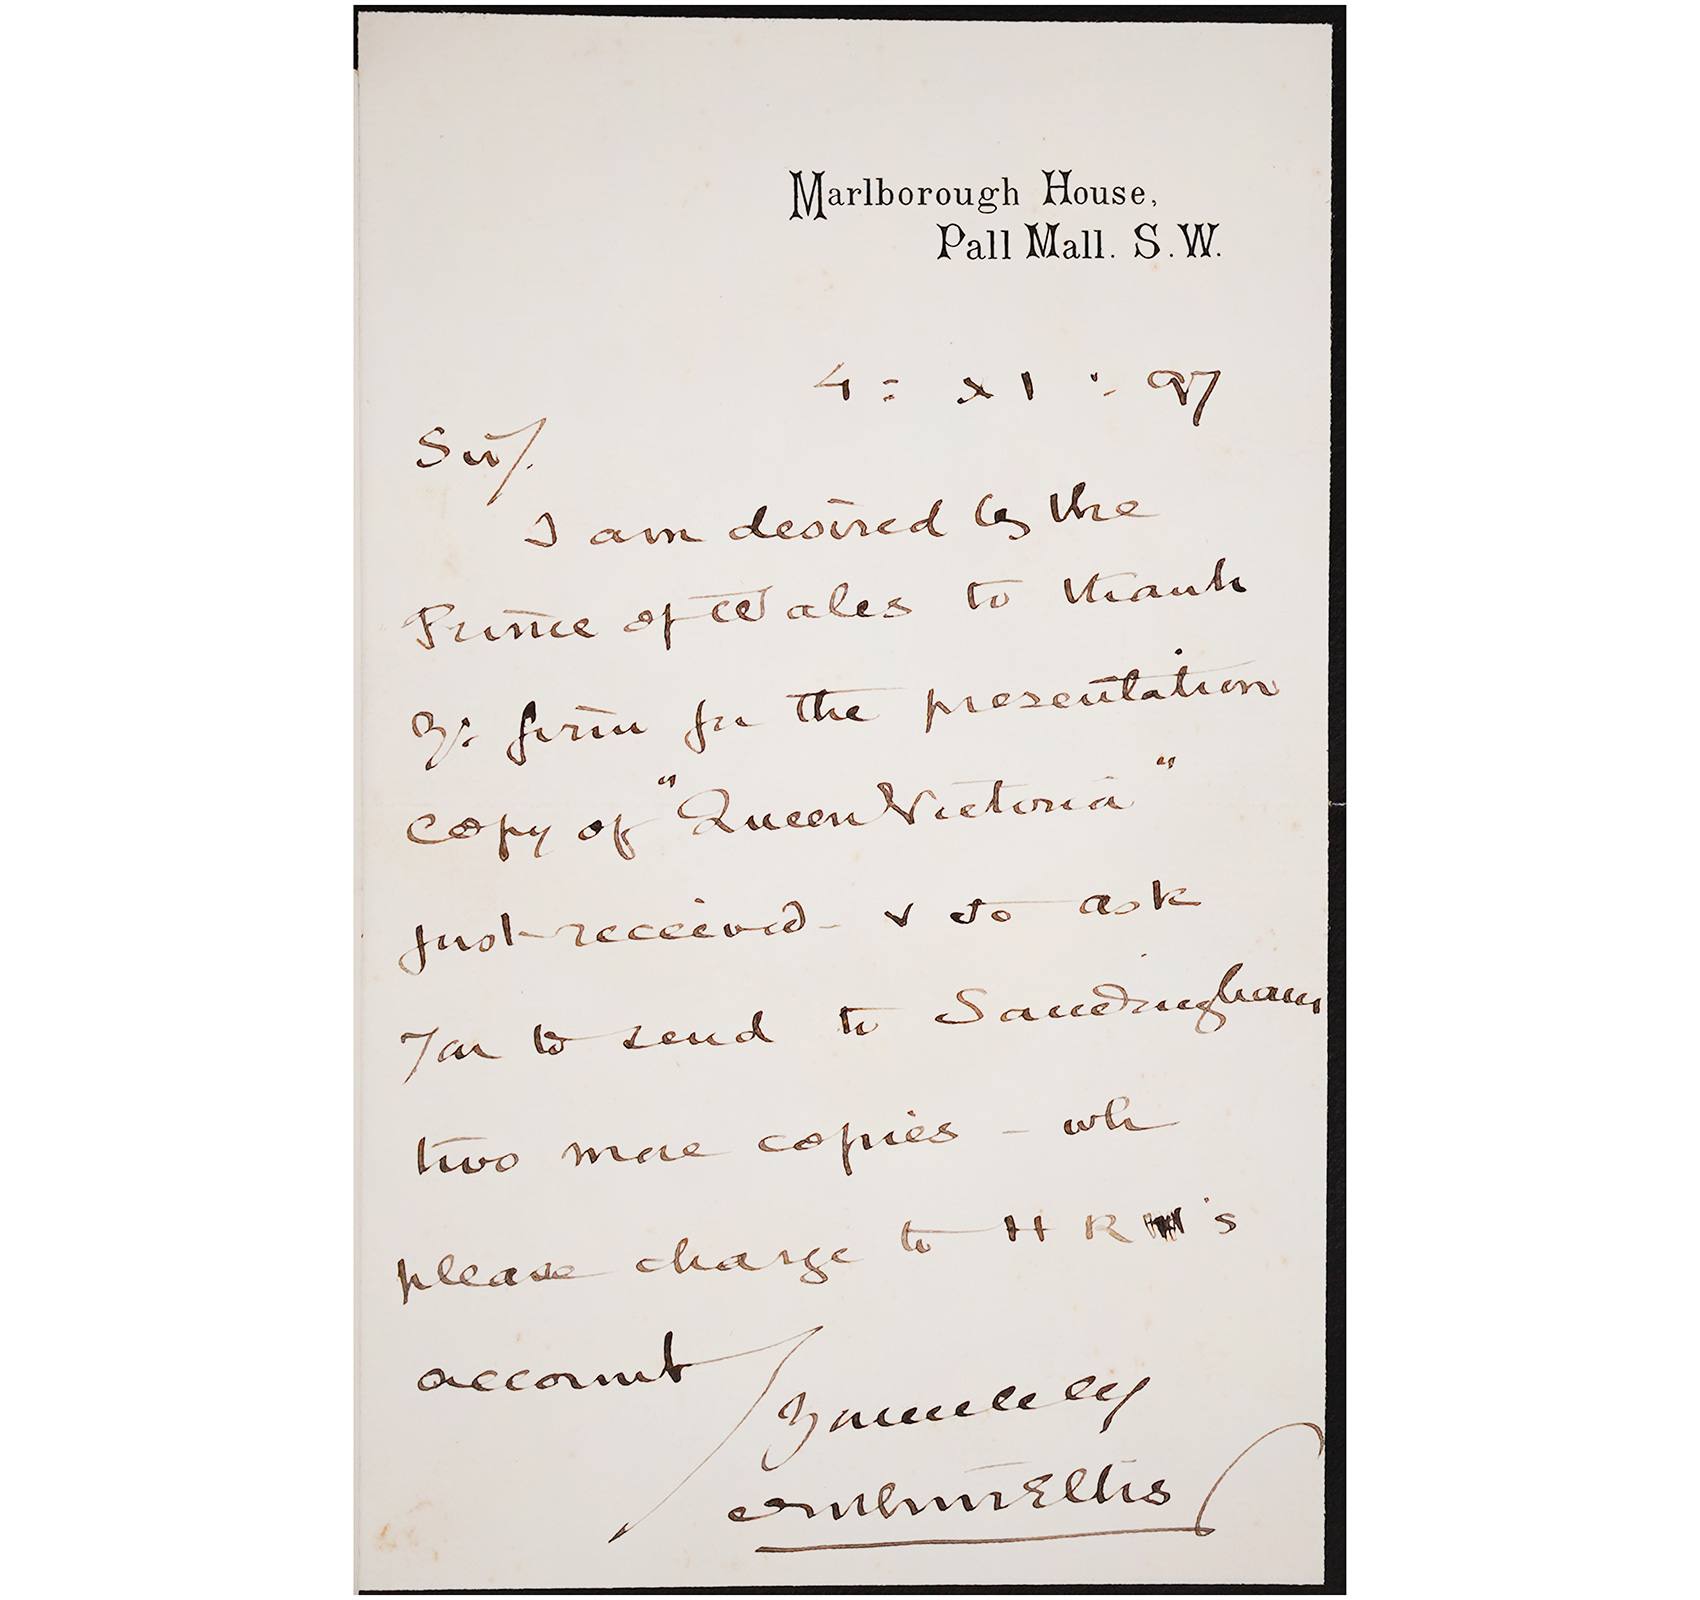 Marlborough House,
Pall Mall. S.W.
4 : XI : 97
Sir/.
I am desired by the
Prince of Wales to thank
yr: firm for the presentation
copy of "Queen Victoria"
just received - & to ask
you to send to Sandringham
two more copies - wh
please charge to HRH's
account
Yours truly
Arthur Ellis